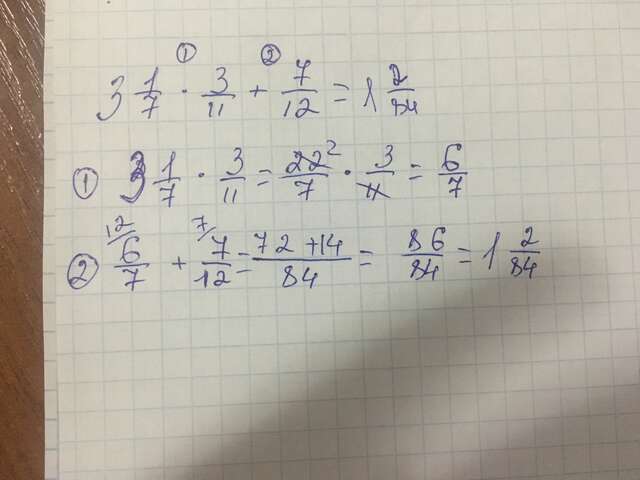 ① ②
3 1/7 · 3/11 + 4/12 = 1 2/84
① 3 1/7 · 3/11 = 22²/7 · 3/11 = 6/7
② ¹²/ 6/7 + ⁷/ 4/12 = 72+14/84 = 86/84 = 1 2/84